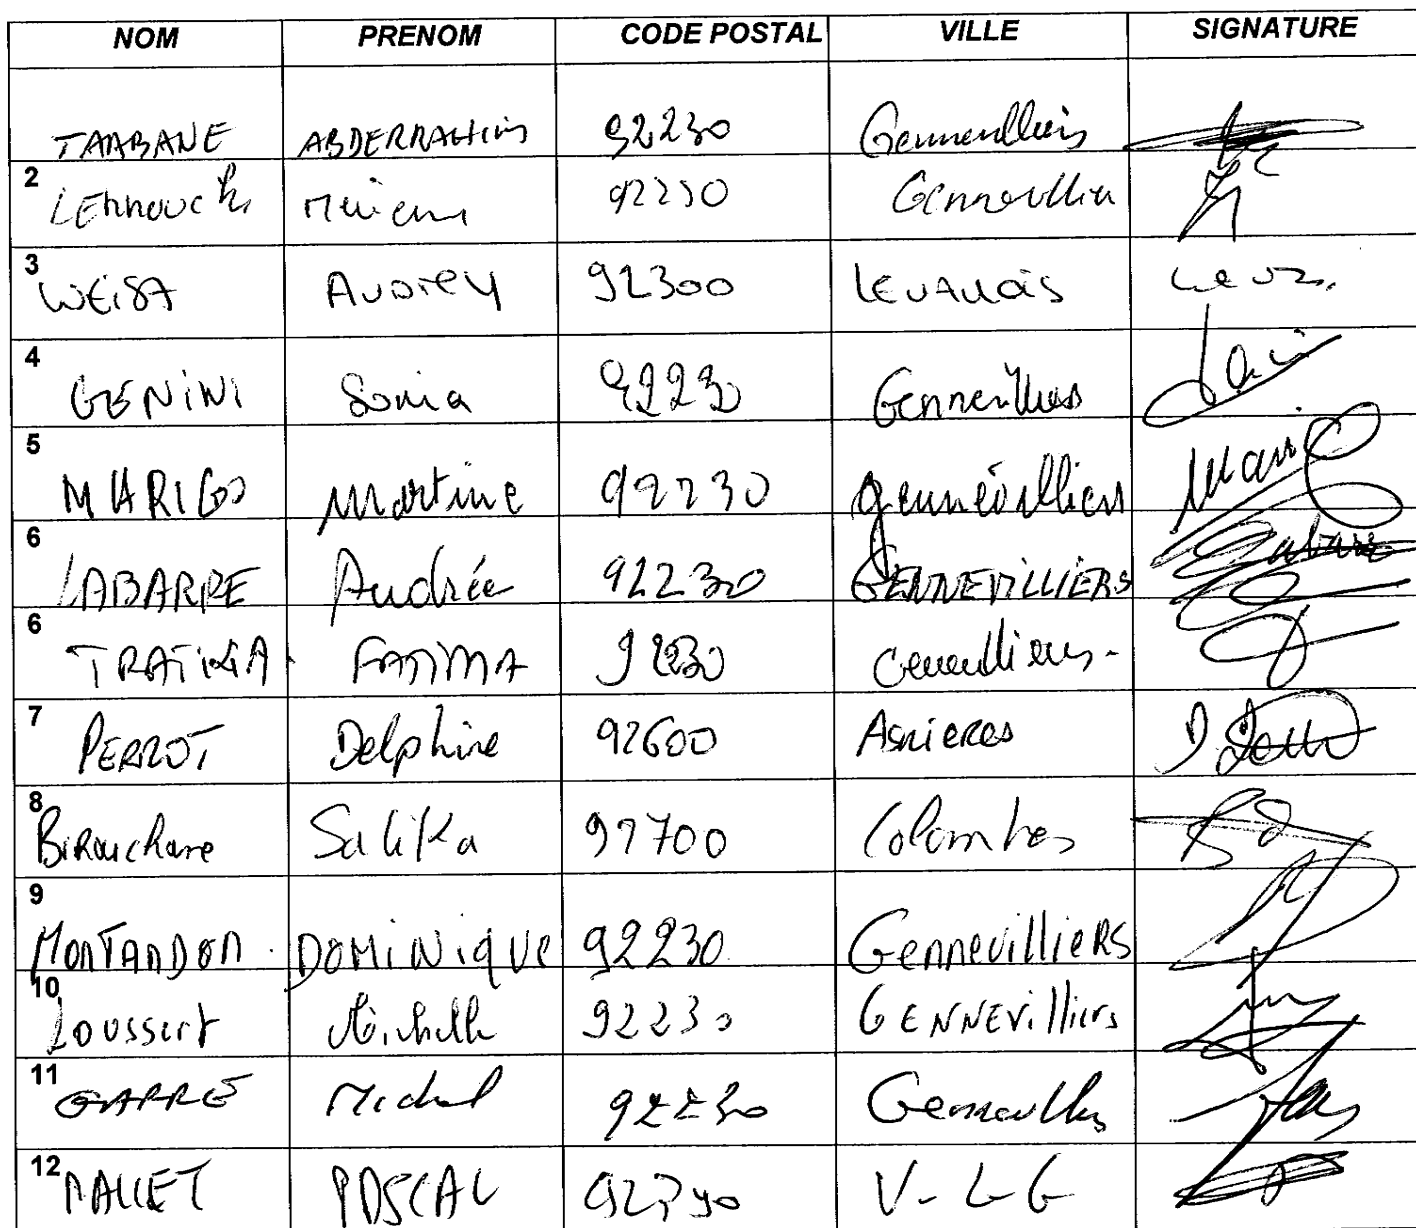 NOM PRENOM CODE POSTAL VILLE SIGNATURE
TAABANE ABDERRAHIM 92230 Gennevilliers
2 LEHNOUCHI Meriem 92230 Gennevilliers
3 WEISZ AUDREY 92300 LEVALLOIS
4 GENINI Sonia 92230 Gennevilliers
5 MARIGO Martine 92230 gennevilliers
6 LABARRE Andrée 92230 GENNEVILLIERS
6 FATIMA 92230 Gennevilliers-
7 PERROT Delphine 92600 Asnieres
8 Birouchane Salika 92700 Colombes
9 MONTANDON DOMINIQUE 92230 GennevillieRS
10 Loussert Michelle 92230 GENNEVilliers
11 GARRE Michel 92230 Gennevilliers
12 PALLET PASCAL V-L-G